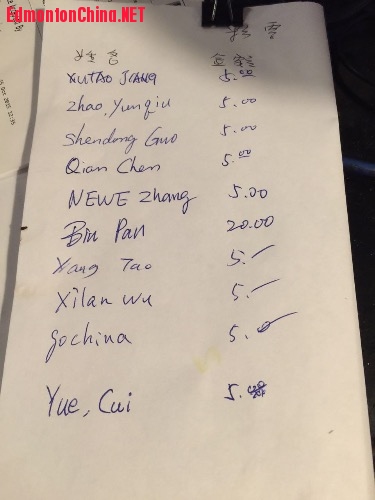 EdmontonChina.NET
姓名
XUTAO JIANG 5.00
Zhao, Yunqiu 5.00
Shendong Guo 5.00
Qian Chen 5.00
NEWE Zhang 5.00
Bin Pan 20.00
Yang Tao 5.
Xilan Wu 5.
gochina 5.0
Yue, Cui 5.00